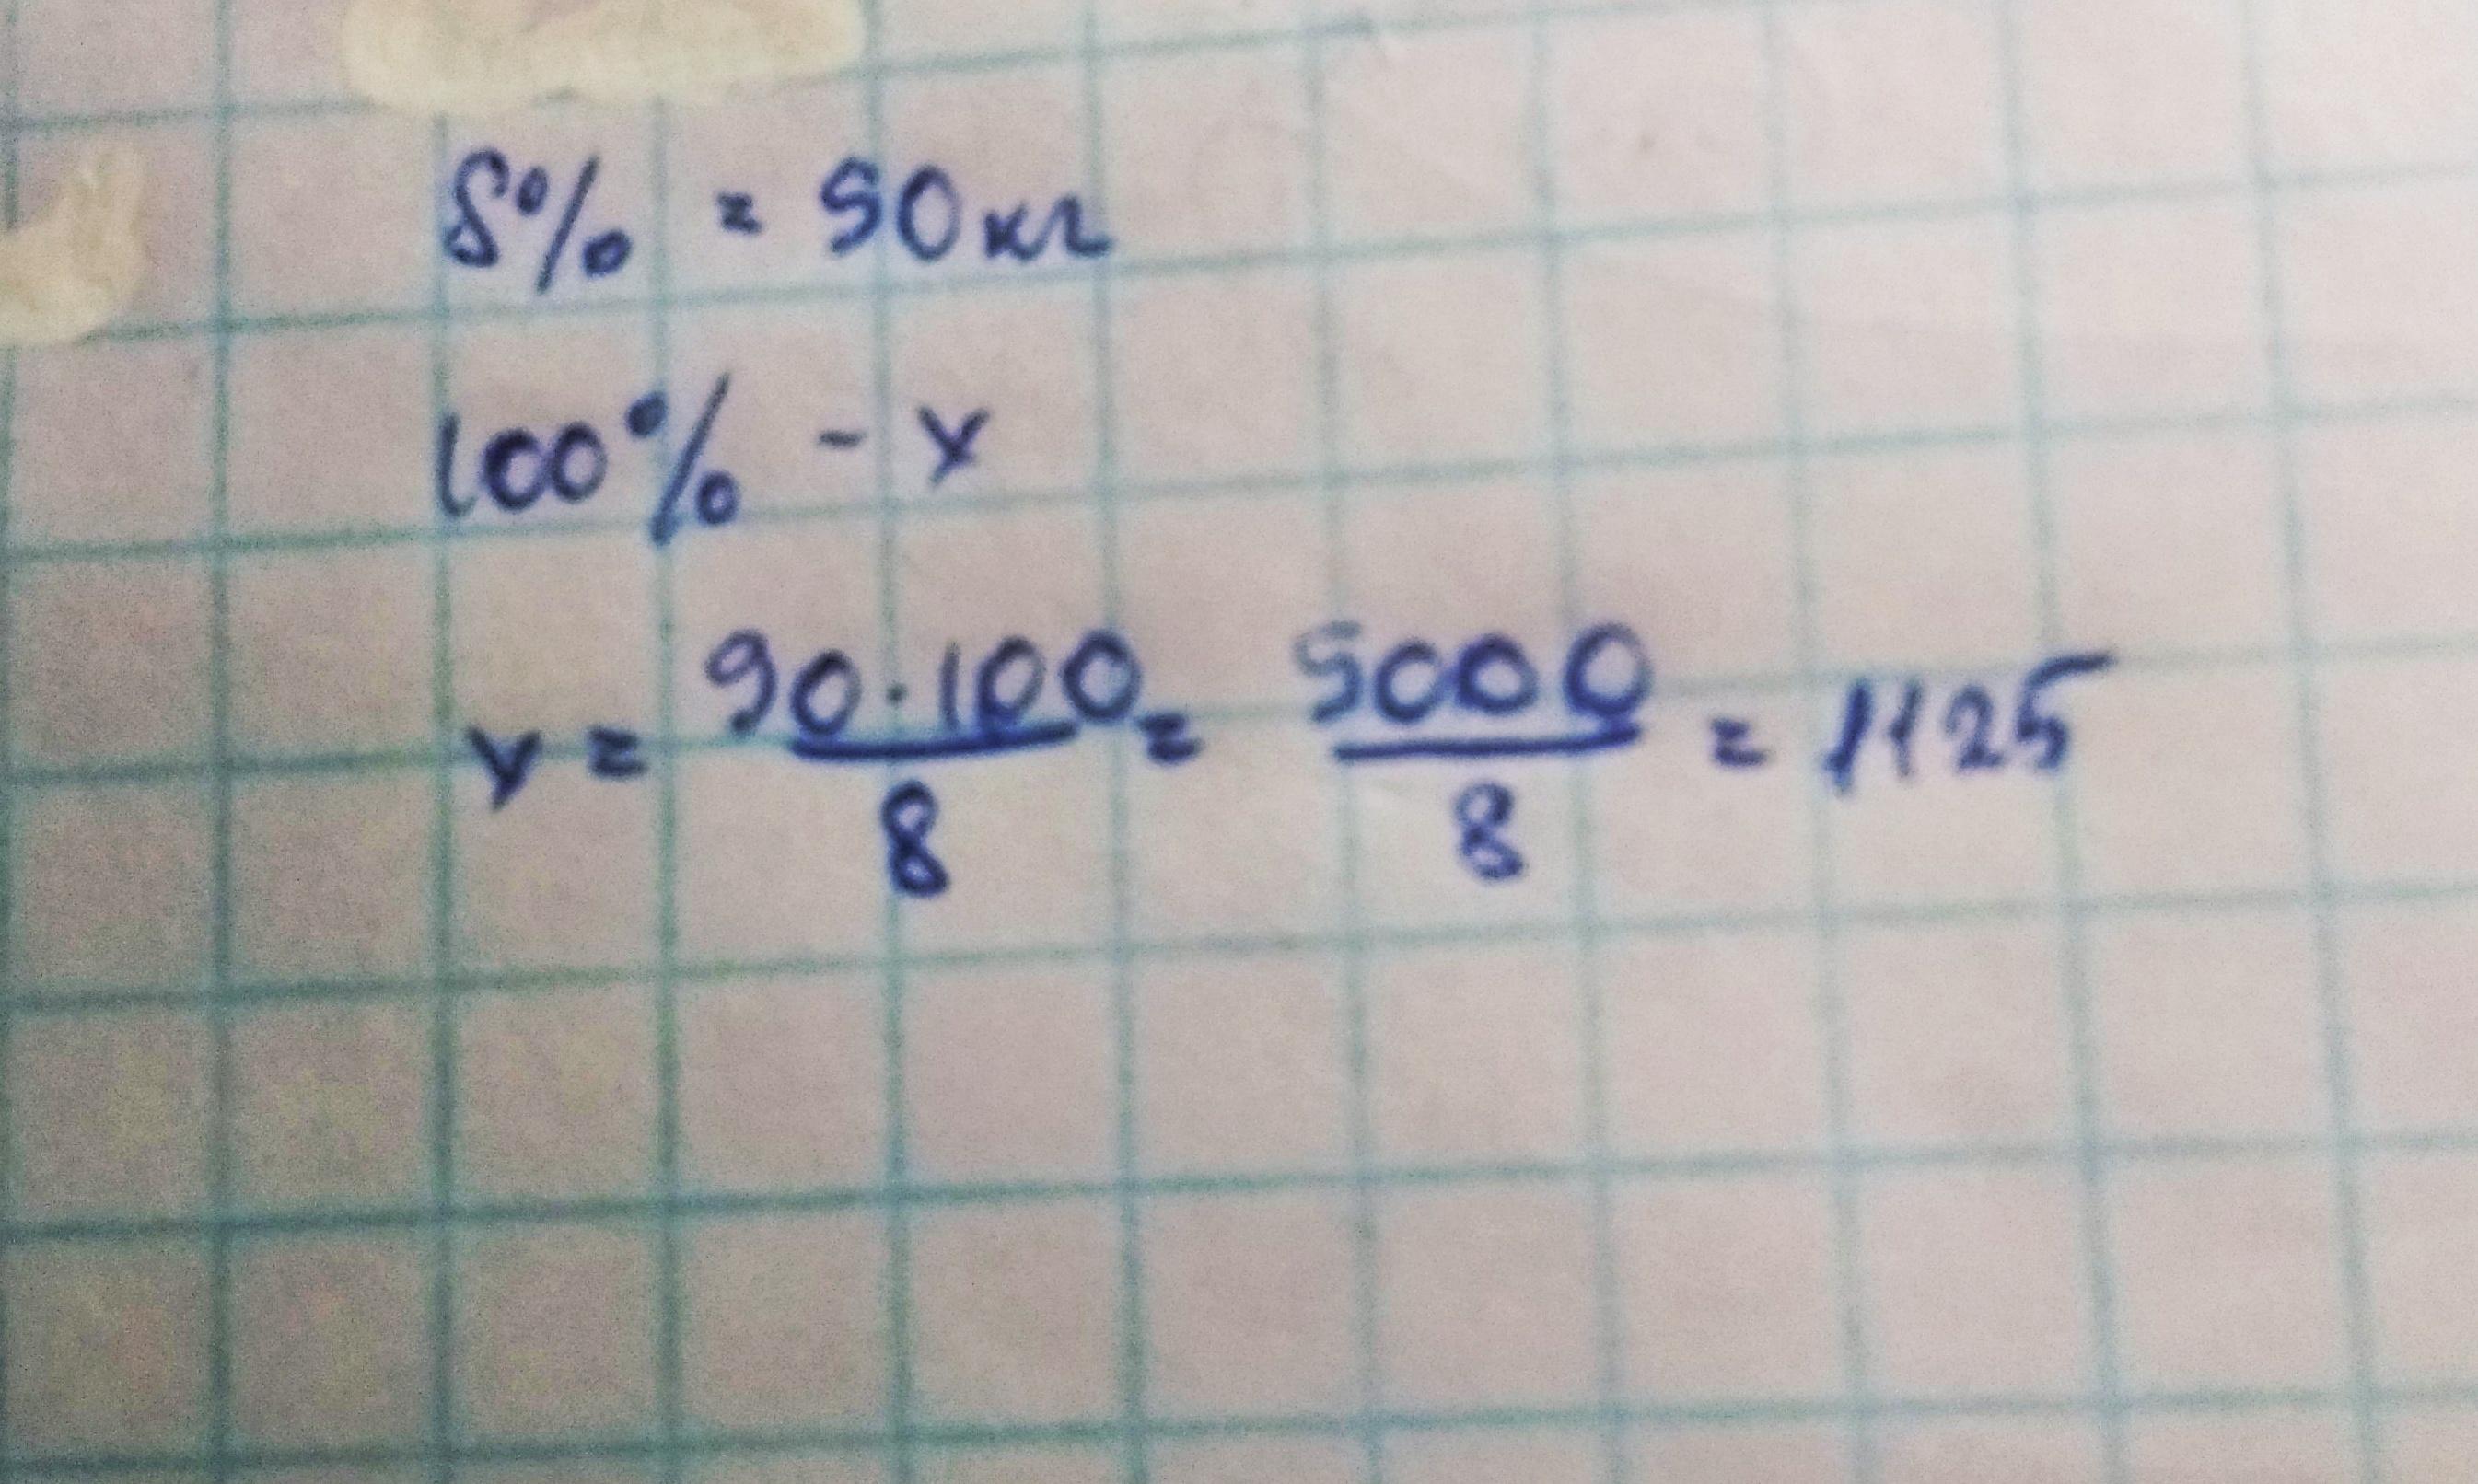 8% = 90кг
100% - x
x = 90·100/8 = 9000/8 = 1125